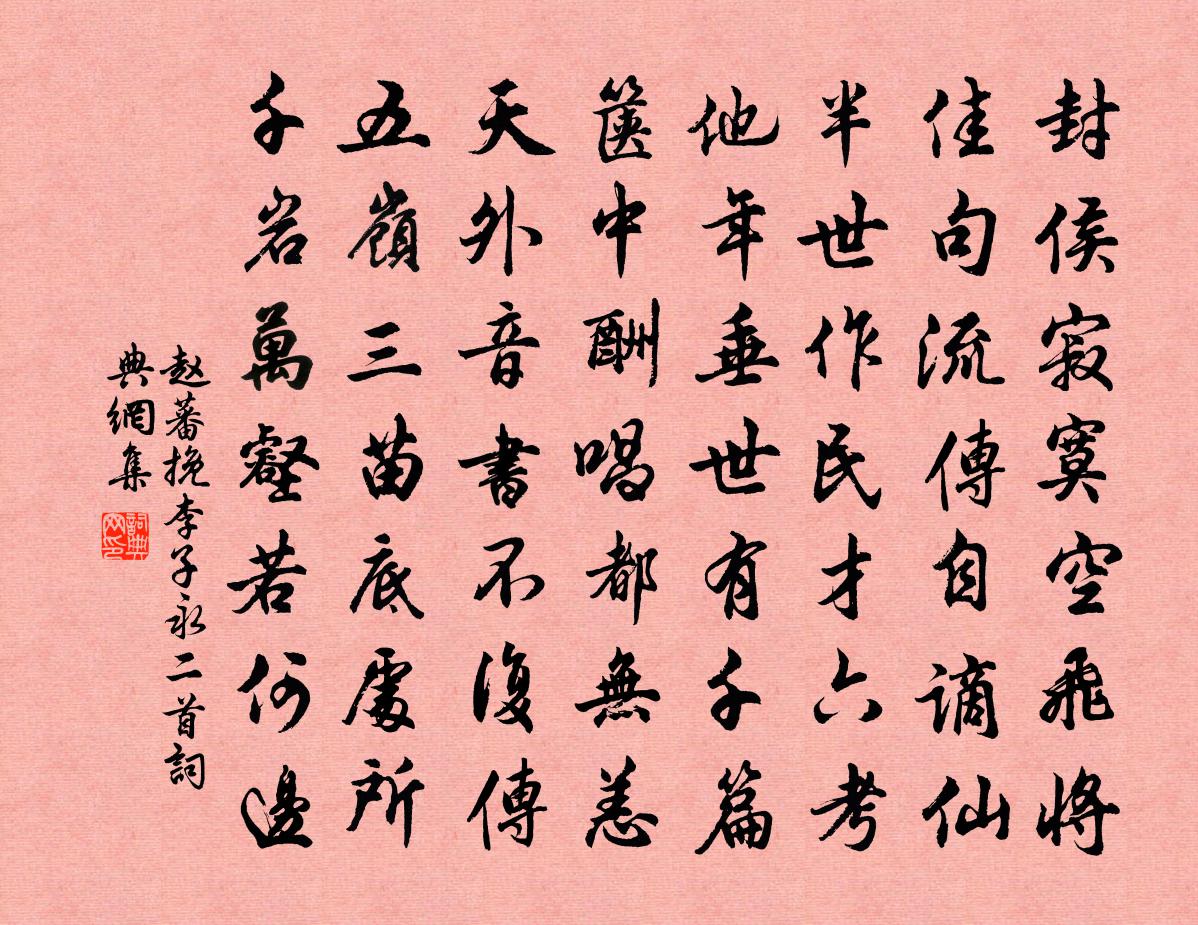 封侯寂寞空飛將
佳句流傳自謫仙
半世作民才六考
他年垂世有千篇
篋中酬唱都無恙
天外音書不復傳
五嶺三苗底處所
千岩萬壑若何邊
赵蕃挽李子永二首詞
典網集
詞典
网印